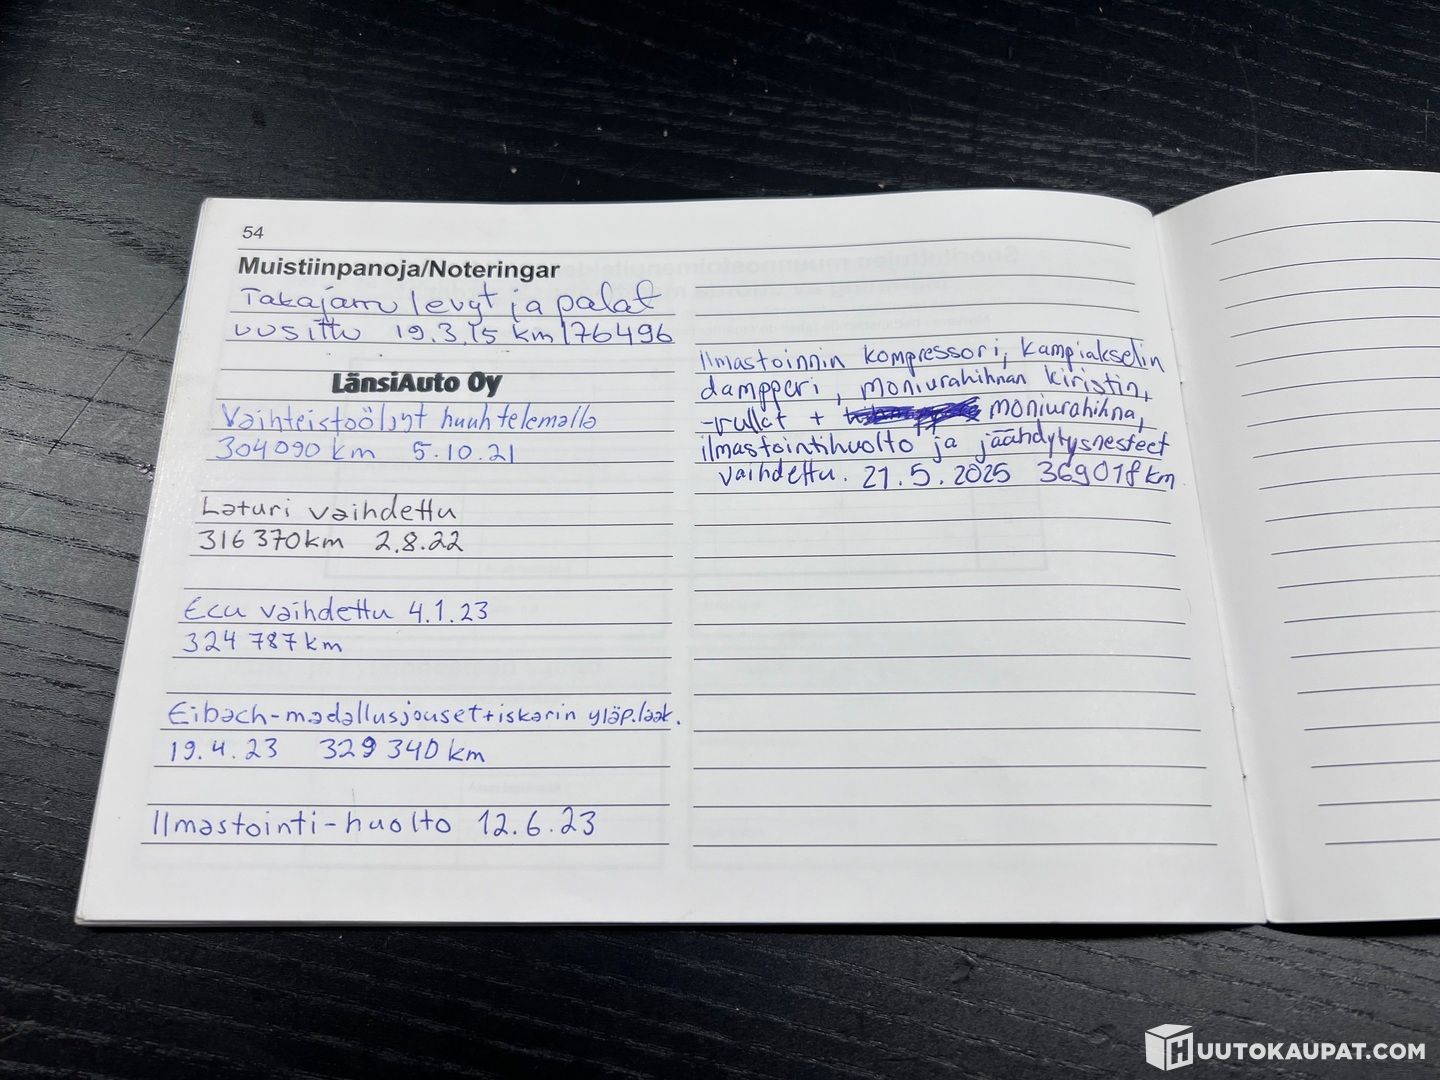 54
Muistiinpanoja/Noteringar
Takajarru levyt ja palat
uusittu 19.3.15 km 176496
LänsiAuto Oy
Vaihteistoöljyt huuhtelemalla
304090 km 5.10.21
Laturi vaihdettu
316 370km 2.8.22
Ecu vaihdettu 4.1.23
324 787km
Eibach-madallusjouset+iskarin yläp.laak.
19.4.23 329 340km
Ilmastointi-huolto 12.6.23
Ilmastoinnin kompressori, kampiakselin
dampperi, moniurahihnan kiristin,
-rullat + moniurahihna,
ilmastointihuolto ja jäähdytysnesteet
vaihdettu. 21.5.2025 369018km
HUUTOKAUPAT.COM